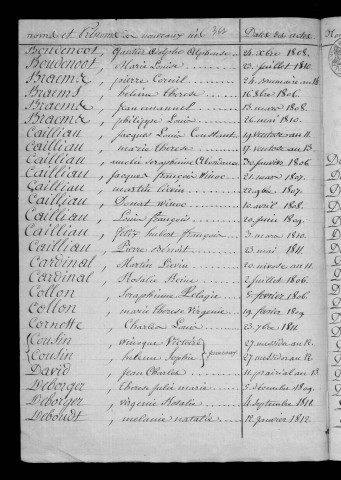 noms et Prénoms des nouveaux nés 362 Dates des actes
Boudenoot, Gautier Adolphe Alphonse, 24 xbre 1808.
Boudenoot, Marie Louise, 23 juillet 1810.
Braems, pierre Corneil, an 14.
Braems, Therese, 16 8bre 1806.
Braems, jean emanuel, 13 mars 1808.
Braems, philippe Louis, 26 mai 1810.
Cailliau, jacques Louis Constant, 19 ventose an 11.
Cailliau, marie Therese, 17 ventose an 13
Cailliau, amelie Seraphinne, 30 janvier 1806.
Cailliau, jacques françois Winoc, 21 mars 1807.
Cailliau, martin livin, 22 9bre 1807.
Cailliau, Donat winoc, 10 avril 1808.
Cailliau, Louis françois, 20 juin 1809.
Cailliau, félix hubert françois, 3 mars 1810.
Cailliau, Pierre Benoit, 23 mai 1811.
Cardinal, Martin Livin, 20 nivose an 11.
Cardinal, Rosalie Reine, 2 juillet 1806.
Collon, Seraphinne Pelagie, 8 fevrier 1806.
Collon, marie Therese Virginie, 19 fevrier 1809.
Cornette, Charles Louis, 23 7bre 1811.
Cousin, winocque Victoire, 27 messidor an 12.
Cousin, helene Sophie, jumeaux, 27 messidor an 12.
David, jean Charles, 11 prairial an 13
Deborger, Therese julie marie, 5 décembre 1809.
Deborger, virginie Rosalie, 4 Septembre 1811.
Deboudt, melanie natalie, 12 janvier 1812.